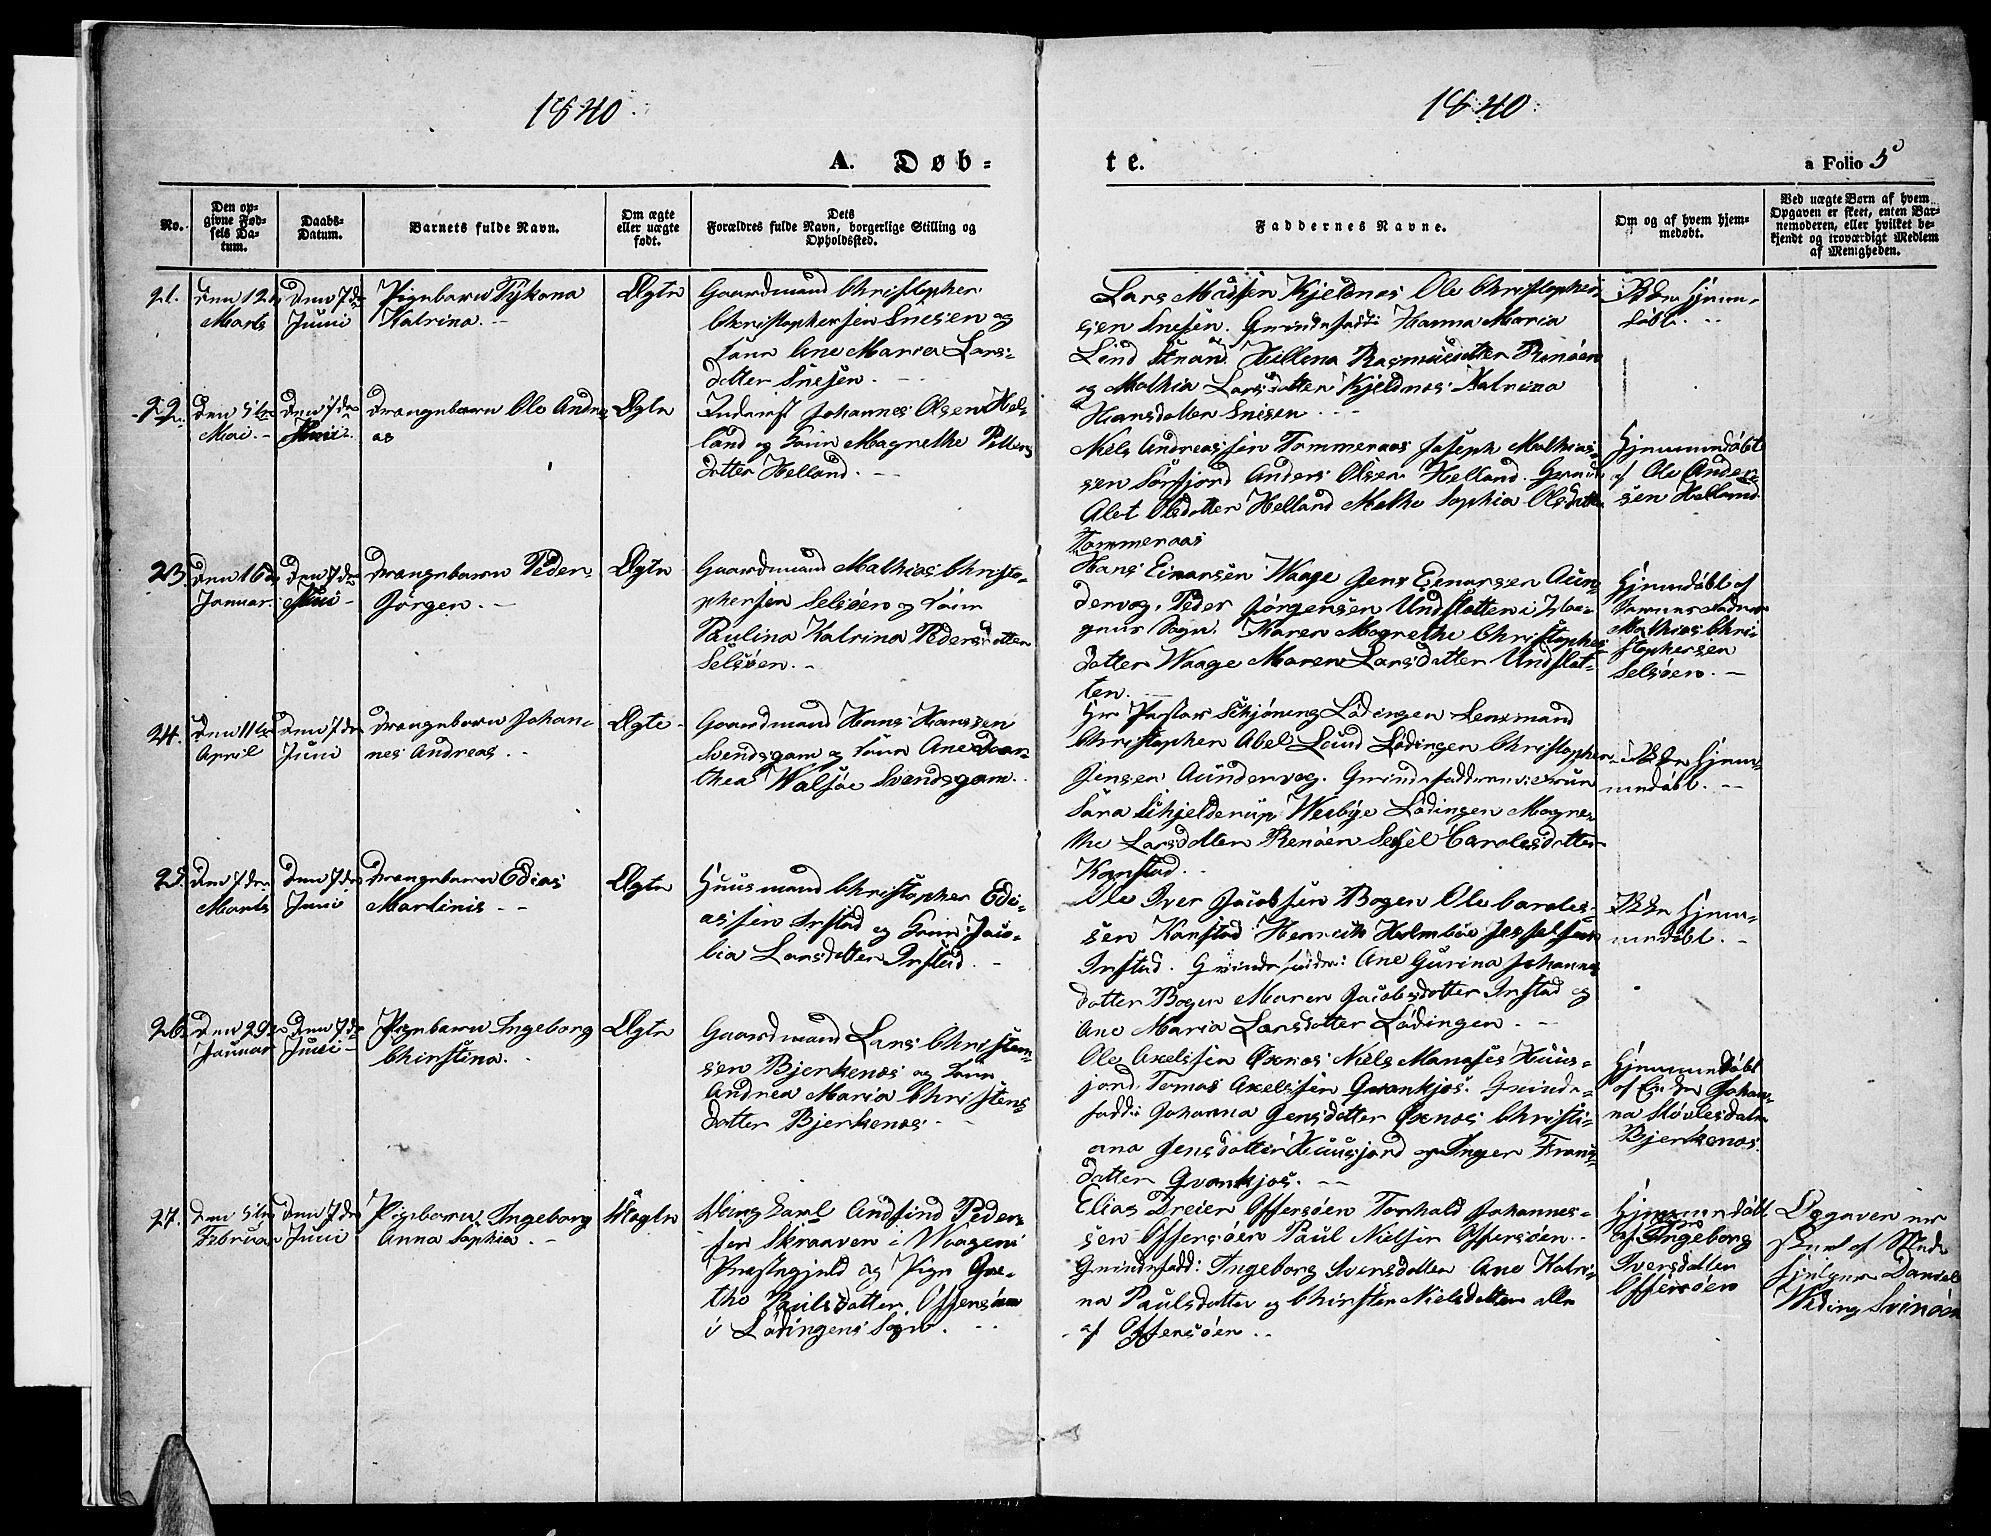 1840.
1840.
A. Døb-
te.
a Folio 5
No.
Den op-
givne Fød-
sels Da-
tum.
Daabs-
Datum.
Barnets fulde Navn.
Om ægte
eller uægte
født.
Dets
Forældres fulde Navn, borgerlige Stilling og
Opholdssted.
Faddernes Navne.
Om og af hvem hjem-
medøbt.
Ved uægte Børn af hvem
Opgaven er skeet, enten Bar-
nemoderen, eller hvilket be-
kjendt og troværdigt Medlem
af Menigheden.
21.
den 12
Marts
den 7de
Juni
Pigebarn Tykona
Katrina.
Ægte
Gaardmand Christopher
Christophersen Snesen og
Kone Ane Maria Lars-
datter Snesen.
Lars Madsen Kjeldnes Ole Christopher
sen Snesen. Qvindefadd: Hanna Maria
Lind Strand Hellena Rasmusdatter Renøen
og Mathia Larsdatter Kjeldnes Katrina
Hansdatter Snesen
Ikke hjem-
døbt.
22.
den 5te
Mai
den 7de
Juni
Drengebarn Ole Andre
as
Ægte
Inderst Johannes Olsen Hel-
land og Kone Magrethe Petters
datter Helland.
Niels Andreassen Tommeraas Joseph Mathias-
sen Sørfjord Anders Olsen Helland. Qvind
Alet Olsdatter Helland Methe Sophia Olsdatter
Tommeraas
Hjemmedøbt
af Ole Ander-
sen Helland
23.
den 16de
Januar
den 7de
Juni
Drengebarn Peder
Jørgen.
Ægte
Gaardmand Mathias Christo-
phersen Selsøen og Kone
Paulina Katrina Pedersdatter
Selsøen.
Hans Einarsen Waage Jens Einarsen Aun-
dervog. Peder Jørgensen Undslotten i Waa-
gens Sogn. Karen Magrethe Christophers
datter Waage Maren Larsdatter Undslot-
ten.
Hjemdøbt af
Barnets Fader
Mathias Chri-
stophersen
Selsøen.
24.
den 11te
April
den 7de
Juni
Drengebarn Johan-
nes Andreas
Ægte
Gaardmand Hans Hanssen
Svendsgam og Kone Ane Dor-
thea Walsøe Svendsgam.
Hr Pastor Schjøning Lødingen Lensmand
Christopher Abel Lund Lødingen Christopher
Jensen Aundervog. Qvindefadderne
Sara Schjelderup Weibye Lødingen Magre-
the Larsdatter Renøen Sesel Carolesdatter
Kanstad.
Ikke hjem-
medøbt.
25.
den 7de
Marts
den 7de
Juni
Drengebarn Edias
Martinis
Ægte
Huusmand Christopher Edi-
assen Irstad og Kone Jaco-
bia Larsdatter Irstad.
Ole Iver Jacobsen Bogen Ole Caroles-
sen Kanstad Henrich Holmboe
Irstad. Qvindefadder: Ane Gurina Johannes
datter Bogen Maren Jacobsdatter Irstad og
Ane Maria Larsdatter Lødingen.
Ikke hjem-
medøbt.
26.
den 29
Januar
den 7de
Juni
Pigebarn Ingeborg
Christina.
Ægte
Gaardmand Lars Christen-
sen Bjerkenes og Kone
Andrea Maria Christens-
datter Bjerkenes.
Ole Axelssen Øxnes Niels Manases Huus-
jord. Tomas Axelssen Qvankjos. Qvinde-
fadd: Johanna Jensdatter Øxnes Christi-
ana Jensdatter Huusjord og Inger Frans-
datter Qvankjos.
Hjemmedøbt
af Enke Johan-
na
Bjerkenes.
27.
den 5te
Februar
den 7de
Juni
Pigebarn Ingeborg
Anna Sophia
Uægte
Ungkarl Andfind Peder-
sen Skraaven i Waagens
Præstegjeld og Pige Gre-
the Paulsdatter Offersøen
i Lødingens Sogn.
Elias Dreier Offersøen Torhald Johannes-
sen Offersøen Paul Nielsen Offersøen.
Qvindefadd: Ingeborg Iversdatter Ane Katri-
na Paulsdatter og Christen Nielsdatter alle
af Offersøen.
Hjemmedøbt
af Ingeborg
Iversdatter
Offersøen
Opgaven er
skeet af
Daniel
Weding Svinøen